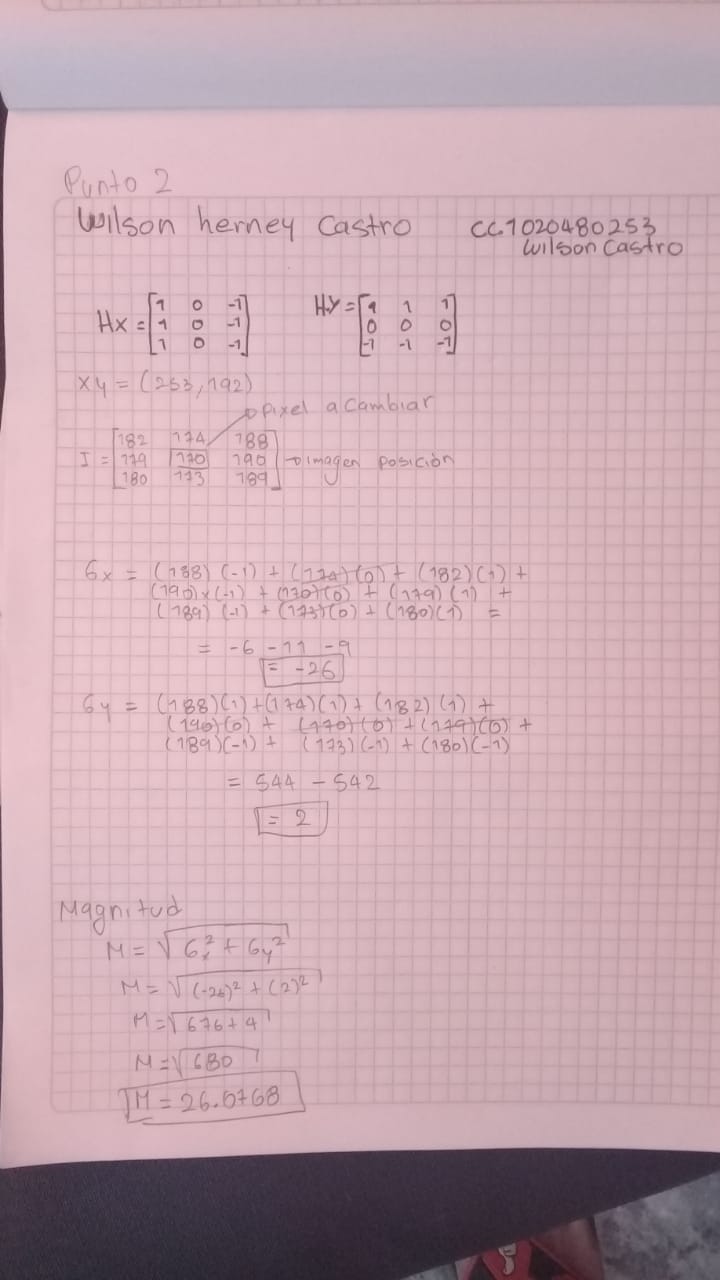 Punto 2
Wilson herney Castro CC.1020480253
Wilson Castro
Hx = [1 0 -1 Hy = [1 1 1]
1 0 -1 0 0 0
1 0 -1] -1 -1 -1]
xy = (253,192)
→ pixel a cambiar
I = [182 174 188
179 170 190 → imagen posición
180 173 189]
Gx = (188)(-1) + (174)(0) + (182)(1) +
(190)x(-1) + (170)(0) + (179)(1) +
(189)(-1) + (173)(0) + (180)(1) =
= -6 -11 -9
= -26
Gy = (188)(1)+(174)(1)+(182)(1) +
(190)(0) + (170)(0) + (179)(0) +
(189)(-1) + (173)(-1) + (180)(-1)
= 544 - 542
= 2
Magnitud
M = √Gx² + Gy²
M = √(-26)² + (2)²
M = √676+4
M = √680
M = 26.0768